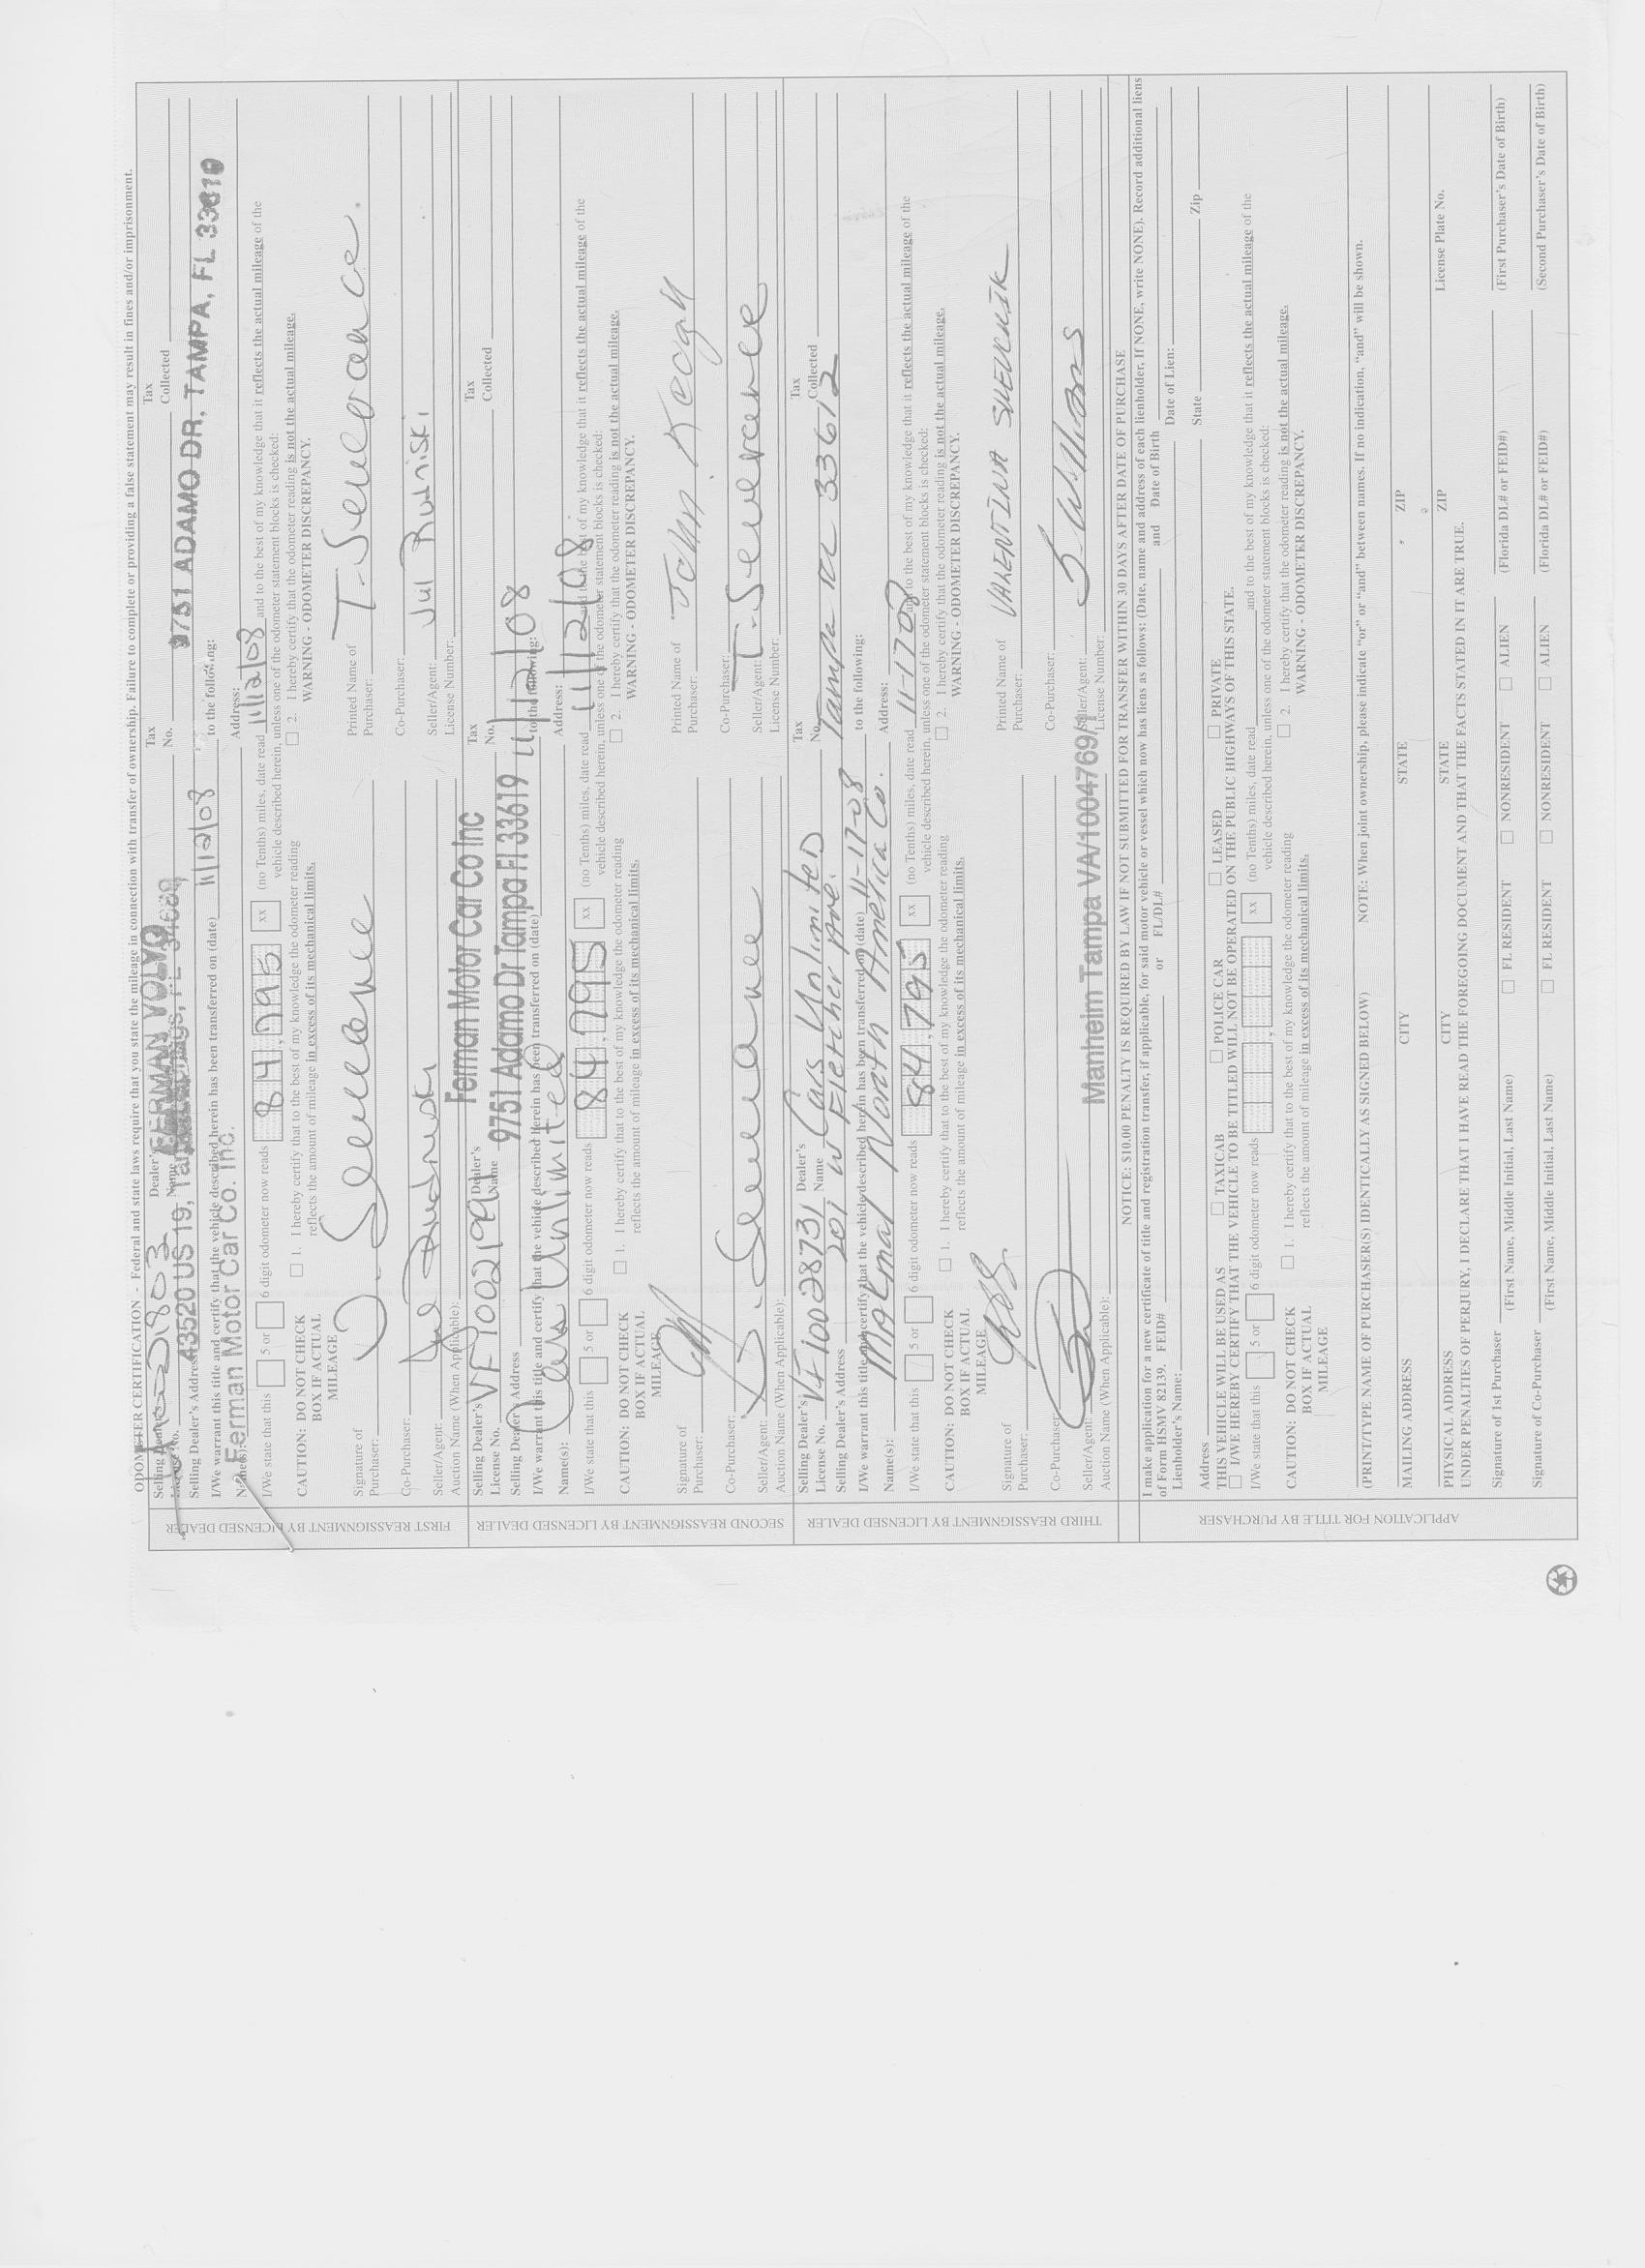 ODOMETER CERTIFICATION - Federal and state laws require that you state the mileage in connection with transfer of ownership. Failure to complete or providing a false statement may result in fines and/or imprisonment.
FIRST REASSIGNMENT BY LICENSED DEALER
Selling Dealer's Dealer's FERMAN VOLVO Tax Tax
License No. Name No. Collected
Selling Dealer's Address 43520 US 19, 34689 9751 ADAMO DR, TAMPA, FL
I/We warrant this title and certify that the vehicle described herein has been transferred on (date) 11/12/08 to the following:
Name(s): Ferman Motor Car Co. Inc. Address:
I/We state that this 5 or 6 digit odometer now reads 84,795 xx (no Tenths) miles, date read 11/12/08 and to the best of my knowledge that it reflects the actual mileage of the
vehicle described herein, unless one of the odometer statement blocks is checked:
CAUTION: DO NOT CHECK BOX IF ACTUAL MILEAGE
1. I hereby certify that to the best of my knowledge the odometer reading
reflects the amount of mileage in excess of its mechanical limits.
2. I hereby certify that the odometer reading is not the actual mileage.
WARNING - ODOMETER DISCREPANCY.
Signature of Purchaser: Printed Name of Purchaser: T. Severance
Co-Purchaser: Co-Purchaser:
Seller/Agent: Seller/Agent: Jul Rudniski
Auction Name (When Applicable): License Number:
SECOND REASSIGNMENT BY LICENSED DEALER
Selling Dealer's License No. VF1002199 Dealer's Name Ferman Motor Car Co Inc Tax No. Tax Collected
Selling Dealer Address 9751 Adamo Dr Tampa Fl 33619
I/We warrant this title and certify that the vehicle described herein has been transferred on (date) 11/12/08 to the following:
Name(s): Cars Unlimited Address:
I/We state that this 5 or 6 digit odometer now reads 84,795 xx (no Tenths) miles, date read 11/12/08 and to the best of my knowledge that it reflects the actual mileage of the
vehicle described herein, unless one of the odometer statement blocks is checked:
CAUTION: DO NOT CHECK BOX IF ACTUAL MILEAGE
1. I hereby certify that to the best of my knowledge the odometer reading
reflects the amount of mileage in excess of its mechanical limits.
2. I hereby certify that the odometer reading is not the actual mileage.
WARNING - ODOMETER DISCREPANCY.
Signature of Purchaser: Printed Name of Purchaser: John Keogh
Co-Purchaser: Co-Purchaser:
Seller/Agent: Seller/Agent: T. Severance
Auction Name (When Applicable): License Number:
THIRD REASSIGNMENT BY LICENSED DEALER
Selling Dealer's License No. VF1002873 Dealer's Name Cars Unlimited Tax No. Tax Collected
Selling Dealer's Address 201 W Fletcher Ave. Tampa FL 33612
I/We warrant this title and certify that the vehicle described herein has been transferred on (date) 11-17-08 to the following:
Name(s): Makmal North America Co. Address:
I/We state that this 5 or 6 digit odometer now reads 84,795 xx (no Tenths) miles, date read 11-17-08 and to the best of my knowledge that it reflects the actual mileage of the
vehicle described herein, unless one of the odometer statement blocks is checked:
CAUTION: DO NOT CHECK BOX IF ACTUAL MILEAGE
1. I hereby certify that to the best of my knowledge the odometer reading
reflects the amount of mileage in excess of its mechanical limits.
2. I hereby certify that the odometer reading is not the actual mileage.
WARNING - ODOMETER DISCREPANCY.
Signature of Purchaser: Printed Name of Purchaser:
Co-Purchaser: Co-Purchaser:
Seller/Agent: Seller/Agent: S. Williams
Auction Name (When Applicable): Manheim Tampa VA/1004769/1 License Number:
NOTICE: $10.00 PENALTY IS REQUIRED BY LAW IF NOT SUBMITTED FOR TRANSFER WITHIN 30 DAYS AFTER DATE OF PURCHASE
APPLICATION FOR TITLE BY PURCHASER
I make application for a new certificate of title and registration transfer, if applicable, for said motor vehicle or vessel which now has liens as follows: (Date, name and address of each lienholder. If NONE, write NONE). Record additional liens
of Form HSMV 82139. FEID# or FL/DL# and Date of Birth
Lienholder's Name: Date of Lien:
Address State Zip
THIS VEHICLE WILL BE USED AS TAXICAB POLICE CAR LEASED PRIVATE
I/WE HEREBY CERTIFY THAT THE VEHICLE TO BE TITLED WILL NOT BE OPERATED ON THE PUBLIC HIGHWAYS OF THIS STATE.
I/We state that this 5 or 6 digit odometer now reads , xx (no Tenths) miles, date read and to the best of my knowledge that it reflects the actual mileage of the
vehicle described herein, unless one of the odometer statement blocks is checked:
CAUTION: DO NOT CHECK BOX IF ACTUAL MILEAGE
1. I hereby certify that to the best of my knowledge the odometer reading
reflects the amount of mileage in excess of its mechanical limits.
2. I hereby certify that the odometer reading is not the actual mileage.
WARNING - ODOMETER DISCREPANCY.
(PRINT/TYPE NAME OF PURCHASER(S) IDENTICALLY AS SIGNED BELOW) NOTE: When joint ownership, please indicate "or" or "and" between names. If no indication, "and" will be shown.
MAILING ADDRESS CITY STATE ZIP
PHYSICAL ADDRESS CITY STATE ZIP License Plate No.
UNDER PENALTIES OF PERJURY, I DECLARE THAT I HAVE READ THE FOREGOING DOCUMENT AND THAT THE FACTS STATED IN IT ARE TRUE.
Signature of 1st Purchaser FL RESIDENT NONRESIDENT ALIEN
(First Name, Middle Initial, Last Name) (Florida DL# or FEID#) (First Purchaser's Date of Birth)
Signature of Co-Purchaser FL RESIDENT NONRESIDENT ALIEN
(First Name, Middle Initial, Last Name) (Florida DL# or FEID#) (Second Purchaser's Date of Birth)